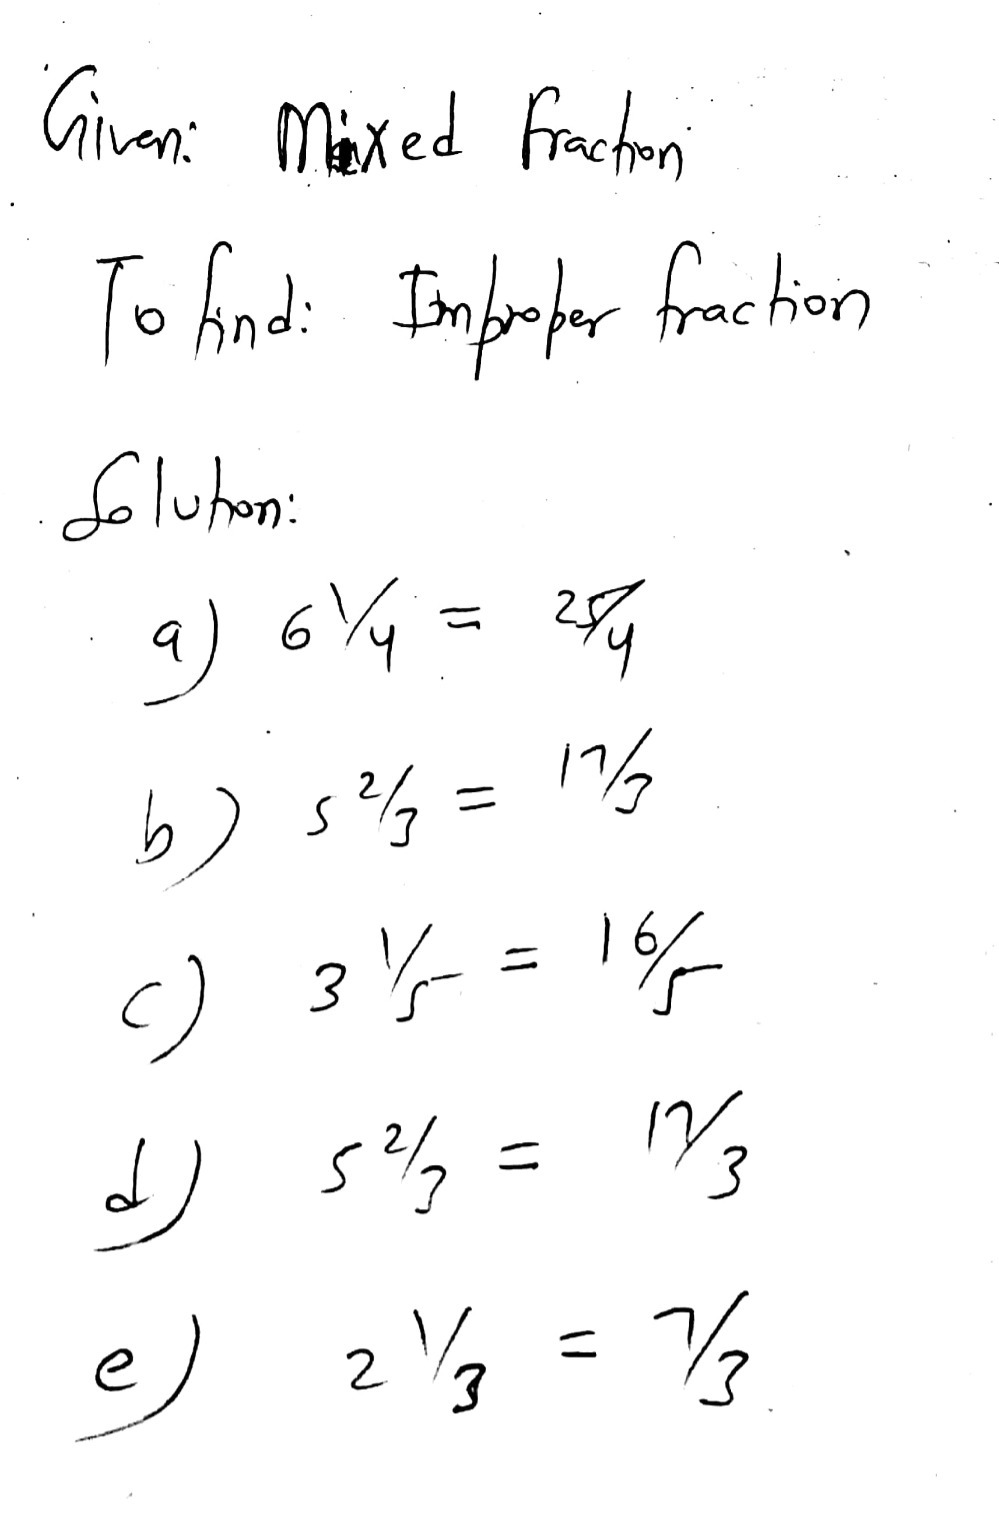 Given: Mixed fraction
To find: Improper fraction
Solution:
a) 6 1/4 = 25/4
b) 5 2/3 = 17/3
c) 3 1/5 = 16/5
d) 5 2/3 = 17/3
e) 2 1/3 = 7/3